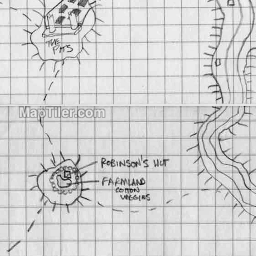 THE
PITS
MapTiler.com
ROBINSON'S HUT
FARMLAND
COTTON
VEGGIES